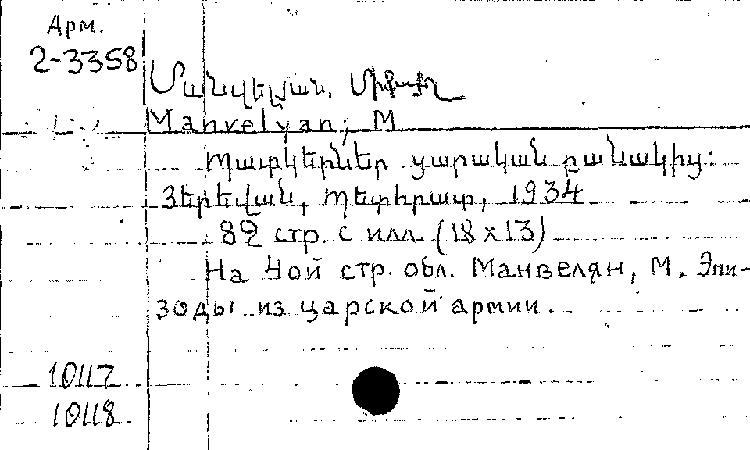 Арм.
2-3358
Մանվելյան, Միքայել
Manvelyan, M
Պատկերներ ցարական բանակից:
Յերեվան, Պետհրատ, 1934
82 стр. с илл. (18 x 13)
На 4ой стр. обл. Манвелян, М. Эпи-
зоды из царской армии.
10117
10118.